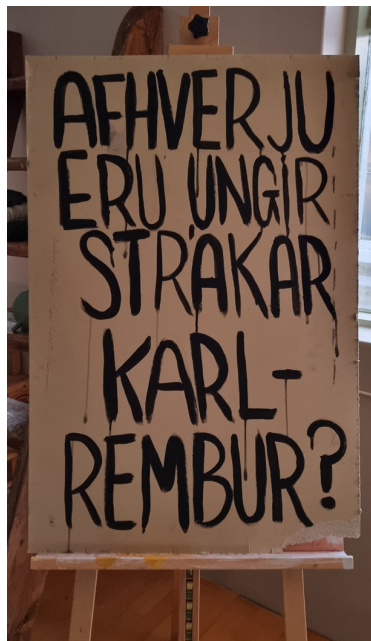 AFHVERJU
ERU UNGIR
STRÁKAR
KARL-
REMBUR?